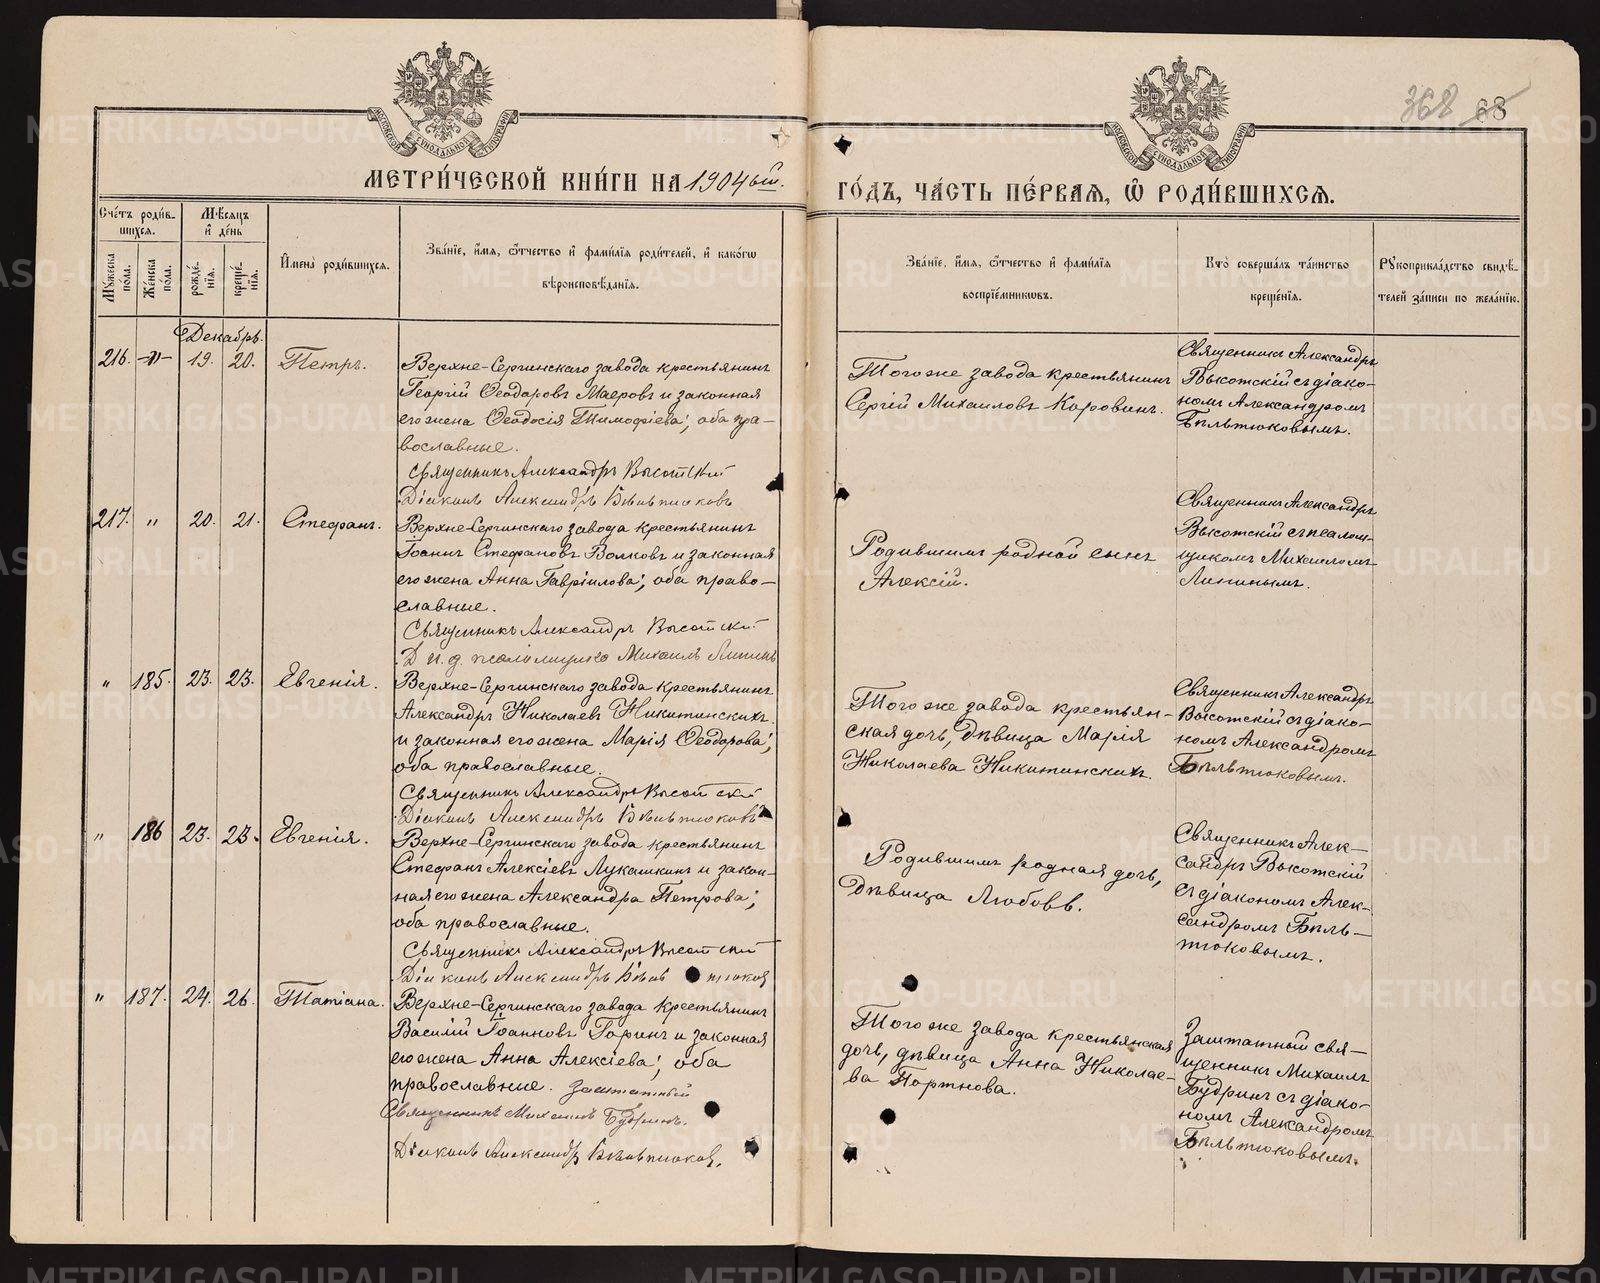 368 68
МОСКОВСКОЙ СѴНОДАЛЬНОЙ ТИПОГРАФІИ
МОСКОВСКОЙ СѴНОДАЛЬНОЙ ТИПОГРАФІИ
МЕТРИ́ЧЕСКОЙ КНИ́ГИ НА 1904ый.
ГО́ДЪ, ЧА́СТЬ ПЕ́РВАЯ, Ѡ҆ РОДИ́ВШИХСЯ.
Сче́тъ роди́вшихся.
Мѣ́сяцъ и҆ де́нь
Мꙋ́жеска по́ла.
Же́нска по́ла.
рожде́нїя.
креще́нїя.
И҆мена̀ роди́вшихся.
Зва́нїе, и҆́мя, ѻ҆́тчество и҆ фами́лїя роди́телей, и҆ како́гѡ
вѣроисповѣ́данїя.
Зва́нїе, и҆́мя, ѻ҆́тчество и҆ фами́лїя
воспрїе́мниковъ.
Кто̀ соверша́лъ та́инство
креще́нїя.
Рꙋкоприкла́дство свидѣ́-
телей за́писи по жела́нїю.
Декабрь.
216. -"- 19. 20. Петръ.
Верхне-Сергинскаго завода крестьянинъ
Георгій Ѳеодоровъ Маеровъ и законная
его жена Ѳеодосія Тимофіева; оба пра-
вославные.
Священникъ Александръ Высотскій
Діаконъ Александръ Бѣльтюковъ
Того же завода крестьянинъ
Сергій Михаиловъ Коровинъ.
Священникъ Александръ
Высотскій съ діако-
номъ Александромъ
Бѣльтюковымъ.
217. " 20. 21. Стефанъ.
Верхне-Сергинскаго завода крестьянинъ
Іоаннъ Стефановъ Волковъ и законная
его жена Анна Гавріилова; оба право-
славные.
Священникъ Александръ Высотскій
И. д. псаломщика Михаилъ Липинъ
Родившимъ родной сынъ
Алексій.
Священникъ Александръ
Высотскій съ псалом-
щикомъ Михаиломъ
Липинымъ.
" 185. 23. 23. Евгенія.
Верхне-Сергинскаго завода крестьянинъ
Александръ Николаевъ Никитинскихъ
и законная его жена Марія Ѳеодорова;
оба православные.
Священникъ Александръ Высотскій
Діаконъ Александръ Бѣльтюковъ
Того же завода крестьян-
ская дочь, дѣвица Марія
Николаева Никитинскихъ.
Священникъ Александръ
Высотскій съ діако-
номъ Александромъ
Бѣльтюковымъ.
" 186 23. 23. Евгенія.
Верхне-Сергинскаго завода крестьянинъ
Стефанъ Алексіевъ Лукашкинъ и закон-
ная его жена Александра Петрова;
оба православные.
Священникъ Александръ Высотскій
Діаконъ Александръ Бѣльтюковъ
Родившимъ родная дочь,
дѣвица Любовь.
Священникъ Алек-
сандръ Высотскій
съ діакономъ Алек-
сандромъ Бѣль-
тюковымъ.
" 187. 24. 26. Татіана.
Верхне-Сергинскаго завода крестьянинъ
Василій Іоанновъ Горинъ и законная
его жена Анна Алексіева; оба
православные. Заштатный
Священникъ Михаилъ Будринъ.
Діаконъ Александръ Бѣльтюковъ.
Того же завода крестьянская
дочь, дѣвица Анна Николае-
ва Портнова.
Заштатный свя-
щенникъ Михаилъ
Будринъ съ діако-
номъ Александромъ
Бѣльтюковымъ.
METRIKI.GASO-URAL.RU